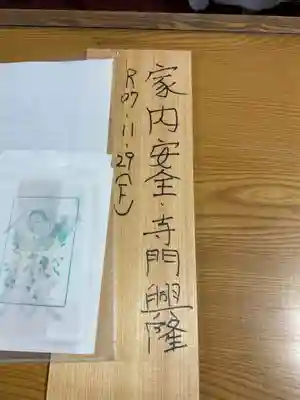 家内安全・寺門興隆
R07・11・29(土)